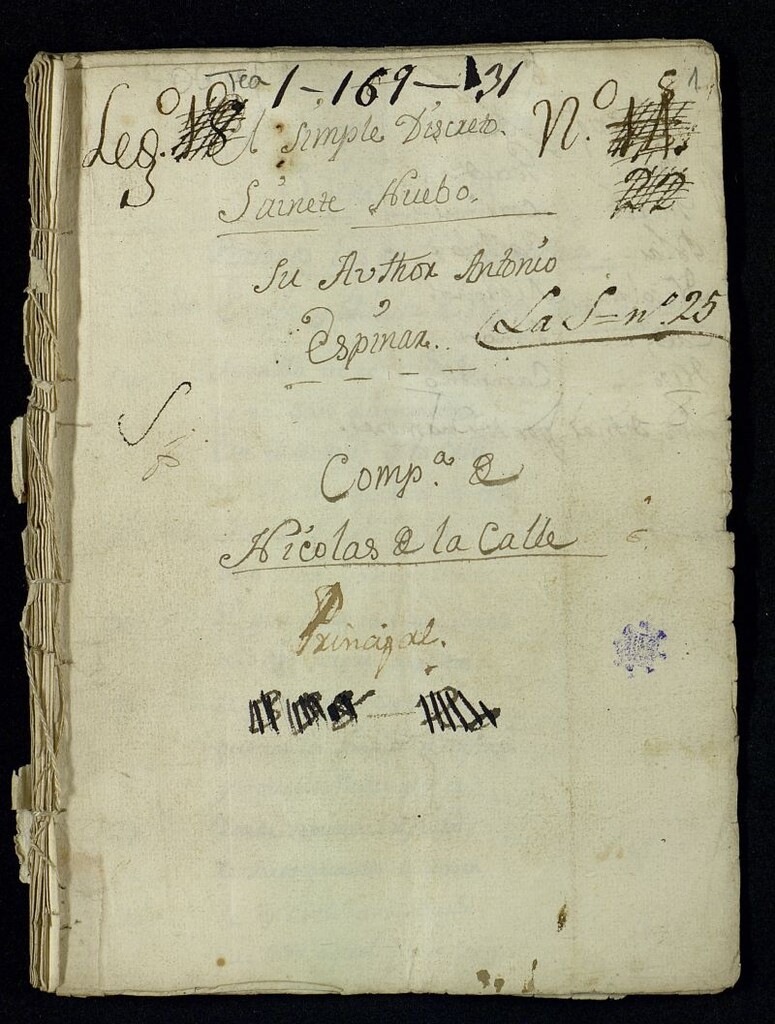 Tea 1-169-31
1
Leg.º 18 El Simple Discreto. N.º 8
Sainete Nuebo.
Su Author Antonio
Espinar.
La S= nº 25
Comp.ª de
Nicolas de la Calle
Principal.